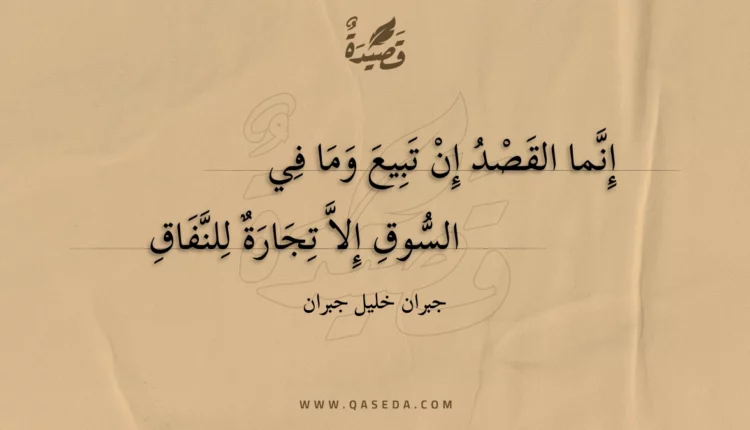 قَصِيْدَةٌ
إِنَّما القَصْدُ إِنْ تَبِيعَ وَمَا فِي
السُّوقِ إِلاَّ تِجَارَةٌ لِلنَّفَاقِ
جبران خليل جبران
WWW.QASEDA.COM